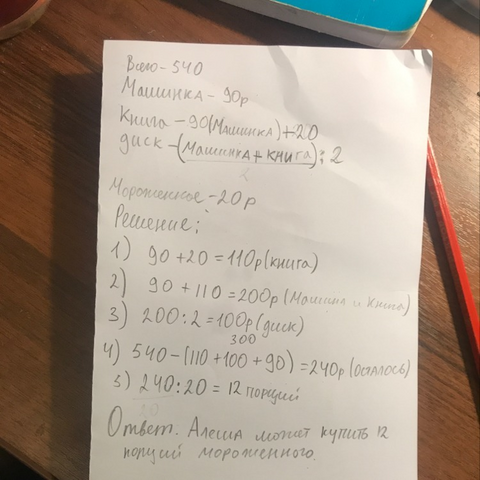 Всего - 540
Машинка - 90р
Книга - 90(Машинка)+20
диск - (Машинка + книга) : 2
Мороженное - 20р
Решение:
1) 90 + 20 = 110р (книга)
2) 90 + 110 = 200р (Машина и Книга)
3) 200 : 2 = 100р (диск)
300
4) 540 - (110 + 100 + 90) = 240р (осталось)
5) 240 : 20 = 12 порций
Ответ. Алеша может купить 12
порций мороженного.